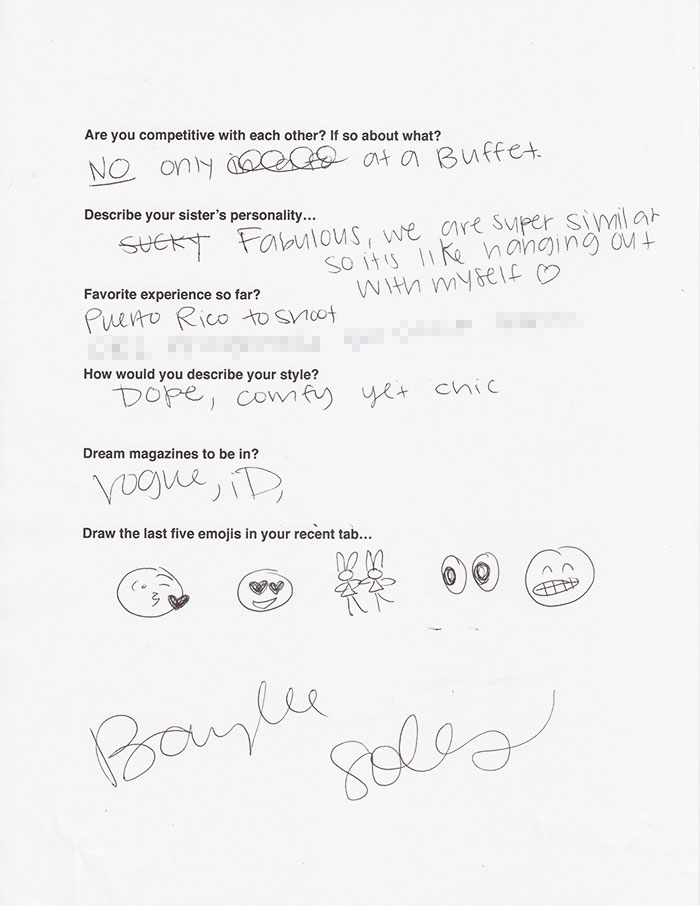 Are you competitive with each other? If so about what?
NO only at a Buffet.
Describe your sister's personality...
SUCKY Fabulous, we are super similar
so it's like hanging out
with myself ♡
Favorite experience so far?
Puerto Rico to shoot
How would you describe your style?
Dope, comfy yet chic
Dream magazines to be in?
Vogue, iD,
Draw the last five emojis in your recent tab...
Baylee
Soles